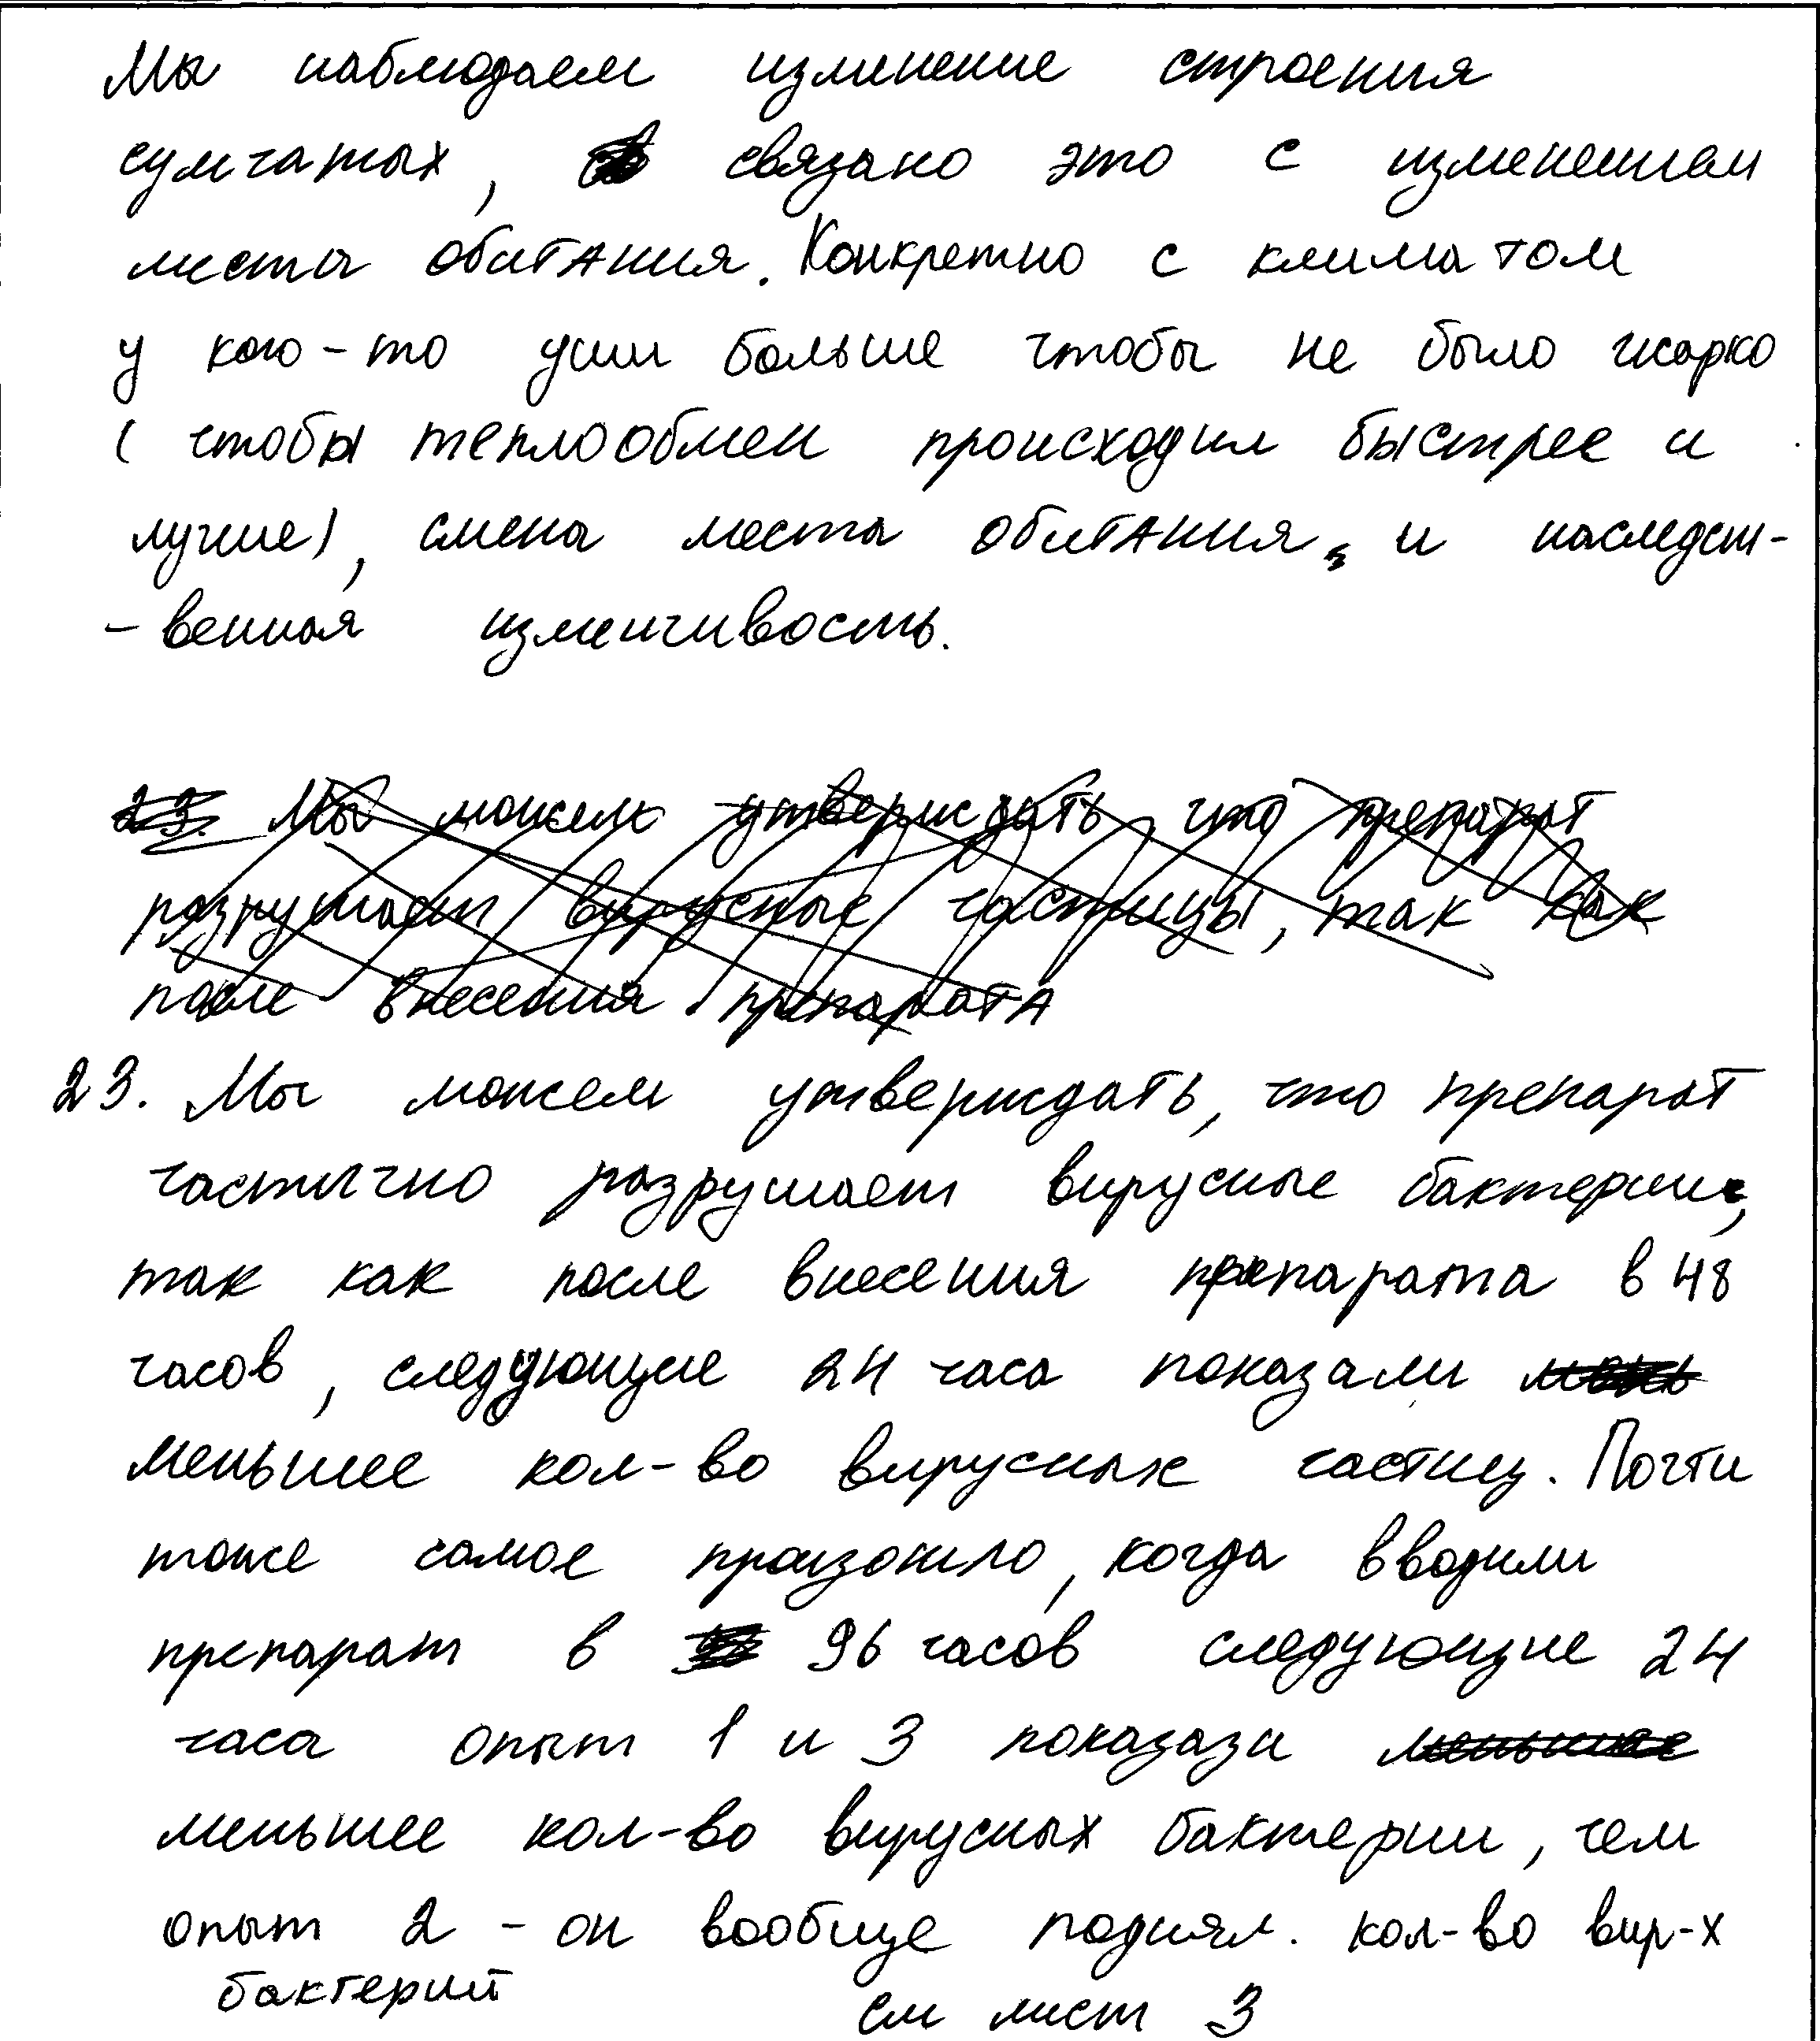 Мы наблюдаем изменение строения
сумчатых, связано это с изменением
места обитания. Конкретно с климатом
у кого-то уши больше чтобы не было жарко
( чтобы теплообмен происходил быстрее и
лучше), смена места обитания, и наследст-
-венная изменчивость.
23. Мы можем утверждать что препарат
разрушает вирусные частицы, так как
после внесения препарата
23. Мы можем утверждать, что препарат
частично разрушает вирусные бактерии,
так как после внесения препарата в 48
часов, следующие 24 часа показали мень
меньшее кол-во вирусных частиц. Почти
тоже самое произошло, когда вводили
препарат в 96 часов следующие 24
часа опыт 1 и 3 показази меньшее
меньшее кол-во вирусных бактерии, чем
опыт 2 - он вообще поднял. кол-во вир-х
бактерий
см лист 3